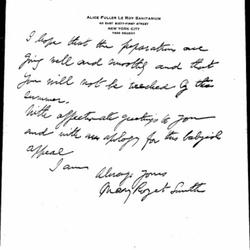 ALICE FULLER LE ROY SANITARIUM
40 EAST SIXTY-FIRST STREET
NEW YORK CITY
I hope that the preparations are
going well and smoothly and that
you will not be wracked by this
summer.
With affectionate greetings to you
and with an apology for this babyish
appeal
I am
Always yours
Mary Rozet Smith